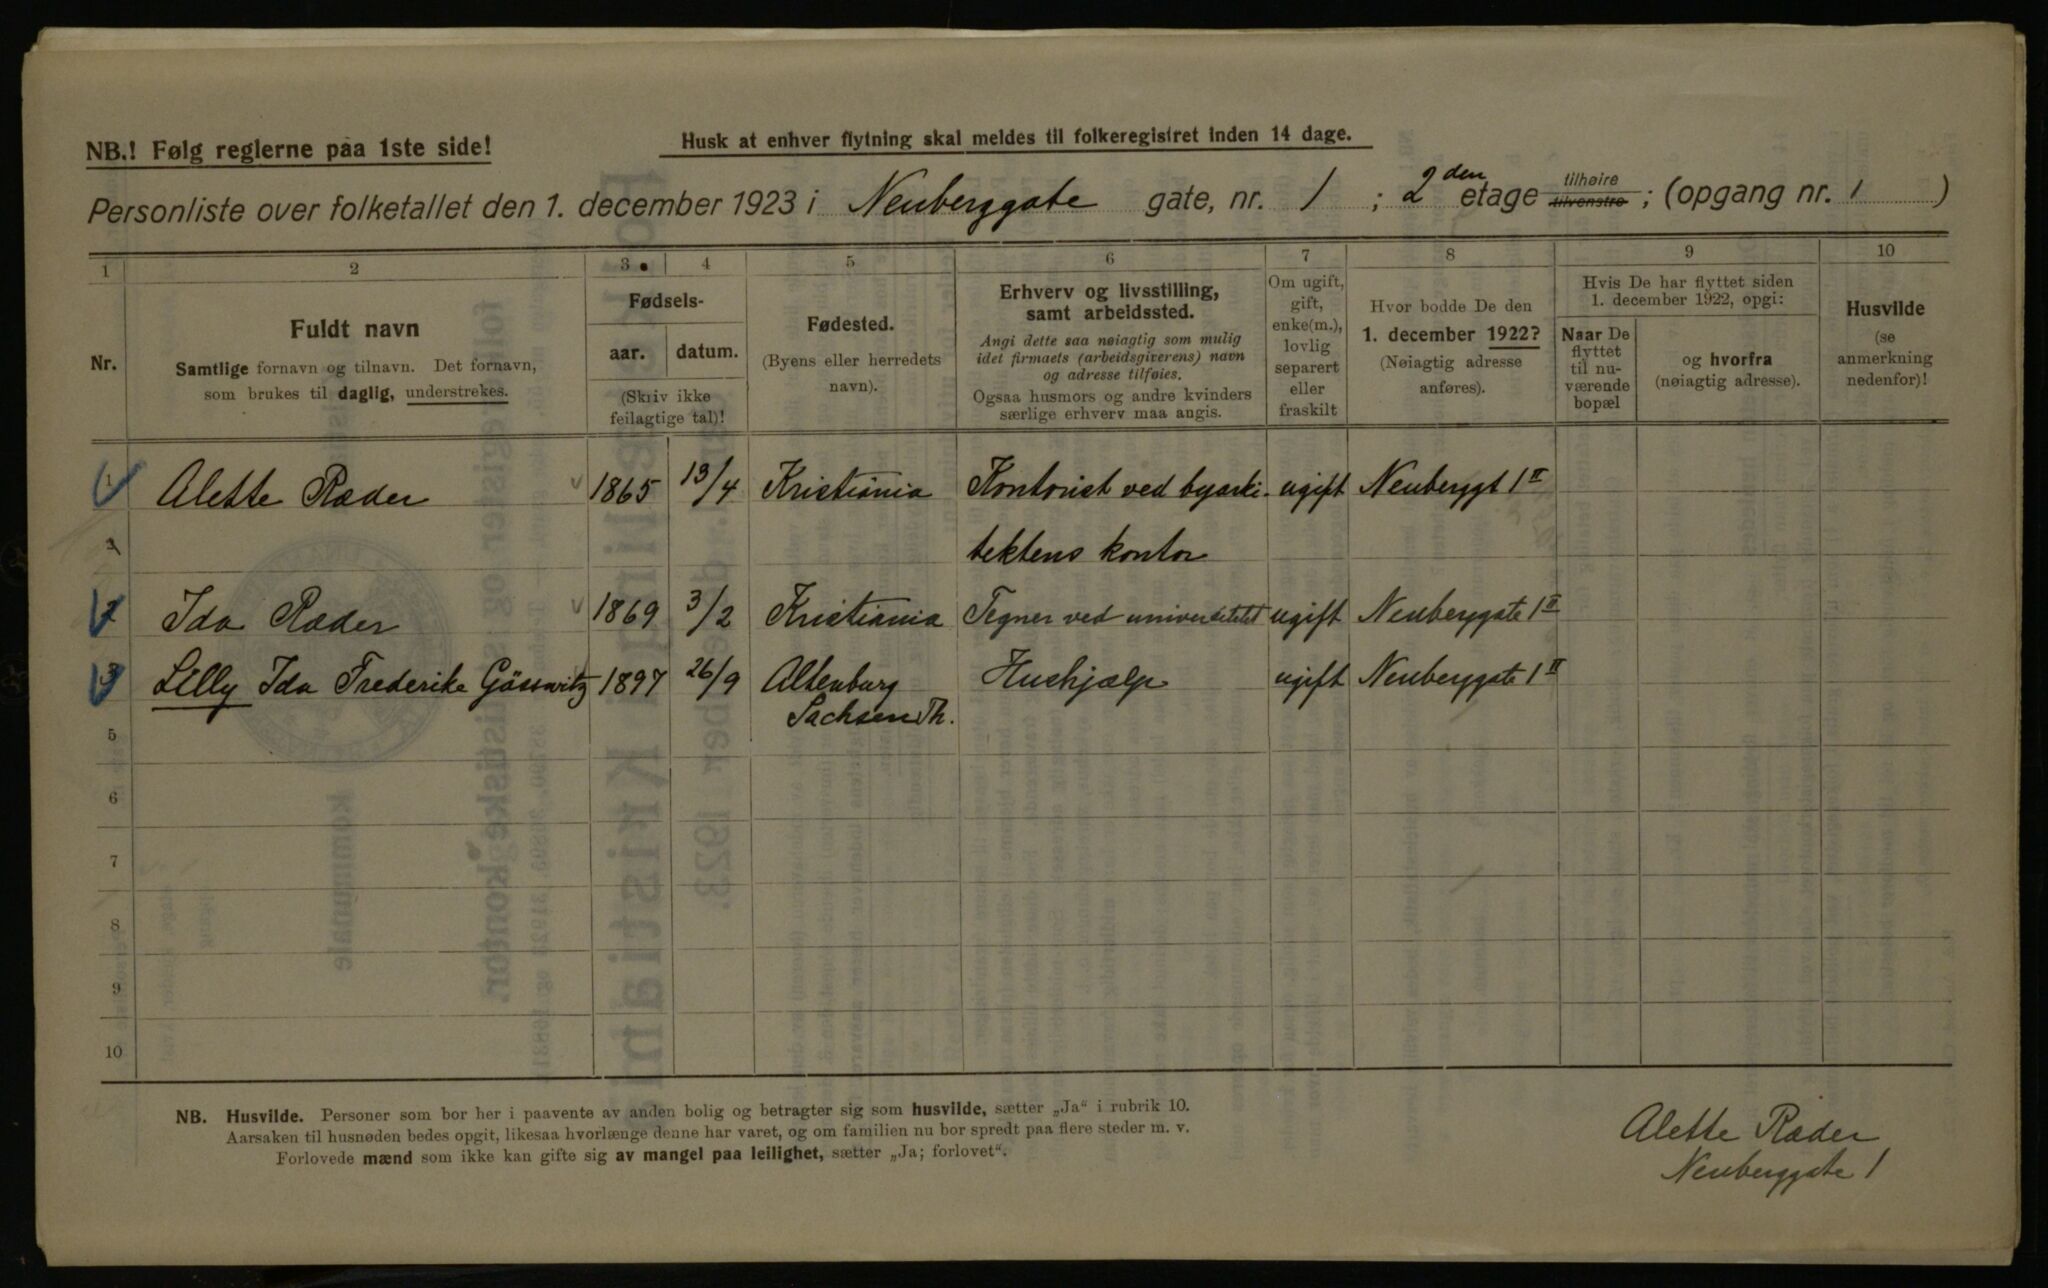 NB.! Følg reglerne paa 1ste side!
Husk at enhver flytning skal meldes til folkeregistret inden 14 dage.
Personliste over folketallet den 1. december 1923 i Neuberggate gate, nr. 1 ; 2den etage tilhøire tilvenstre ; (opgang nr. 1 )
1 2 3 4 5 6 7 8 9 10
Nr.
Fuldt navn
Samtlige fornavn og tilnavn. Det fornavn,
som brukes til daglig, understrekes.
Fødsels-
aar. datum.
(Skriv ikke
feilagtige tal)!
Fødested.
(Byens eller herredets
navn).
Erhverv og livsstilling,
samt arbeidssted.
Angi dette saa nøiagtig som mulig
idet firmaets (arbeidsgiverens) navn
og adresse tilføies.
Ogsaa husmors og andre kvinders
særlige erhverv maa angis.
Om ugift,
gift,
enke(m.),
lovlig
separert
eller
fraskilt
Hvor bodde De den
1. december 1922?
(Nøiagtig adresse
anføres).
Hvis De har flyttet siden
1. december 1922, opgi:
Naar De
flyttet
til nu-
værende
bopæl
og hvorfra
(nøiagtig adresse).
Husvilde
(se
anmerkning
nedenfor)!
1 Alette Ræder 1865 13/4 Kristiania Kontorist ved byarki- ugift Neuberggt 1 II
2 tektens kontor
2 Ida Ræder 1869 3/2 Kristiania Tegner ved universitetet ugift Neuberggate 1 II
3 Lilly Ida Frederike Gössnitz 1897 26/9 Altenburg Hushjælp ugift Neuberggate 1 II
5 Sachsen Th.
6
7
8
9
10
NB. Husvilde. Personer som bor her i paavente av anden bolig og betragter sig som husvilde, sætter „Ja“ i rubrik 10.
Aarsaken til husnøden bedes opgit, likesaa hvorlænge denne har varet, og om familien nu bor spredt paa flere steder m. v.
Forlovede mænd som ikke kan gifte sig av mangel paa leilighet, sætter „Ja; forlovet“.
Alette Ræder
Neuberggate 1